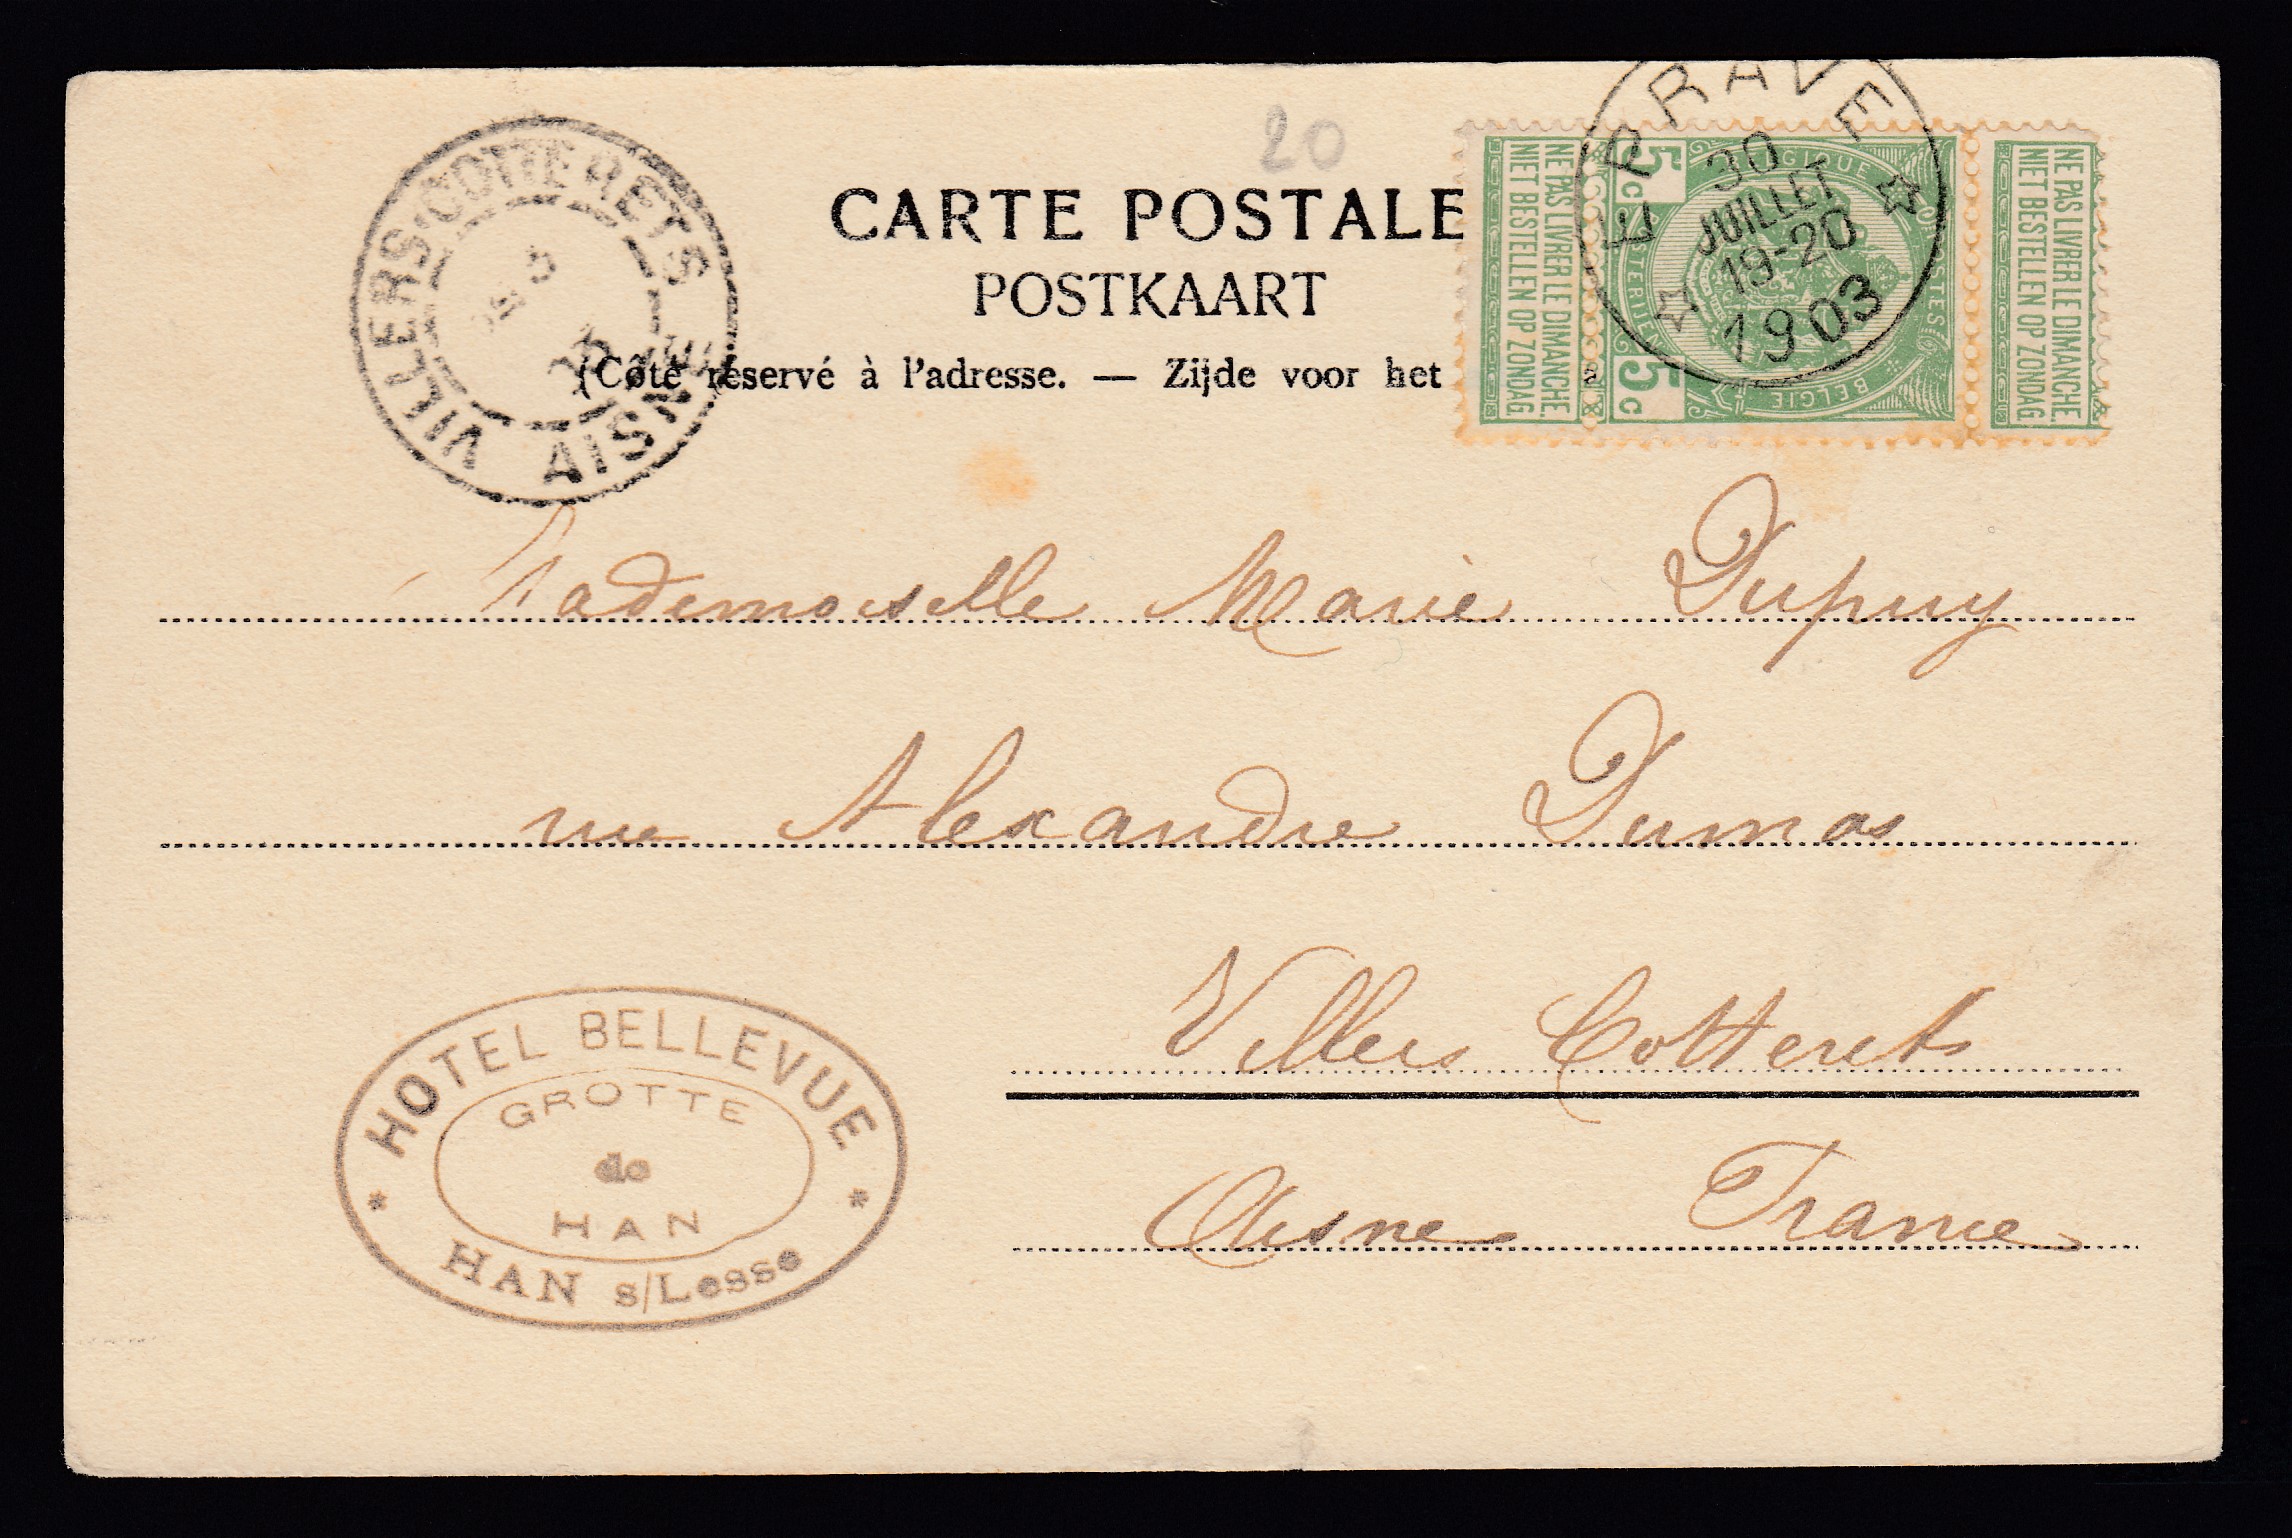 20
CARTE POSTALE
POSTKAART
(Côté réservé à l'adresse. — Zijde voor het
VILLERS-COTTERETS
AISNE
NE PAS LIVRER LE DIMANCHE.
NIET BESTELLEN OP ZONDAG
5c
BELGIQUE
BELGIE
5c
NE PAS LIVRER LE DIMANCHE.
NIET BESTELLEN OP ZONDAG
EPRAVE
30
JUILLET
19-20
1903
Mademoiselle Marie Dupuy
rue Alexandre Dumas
Villers Cotterets
Aisne France
HOTEL BELLEVUE
GROTTE
de
HAN
HAN s/Lesse